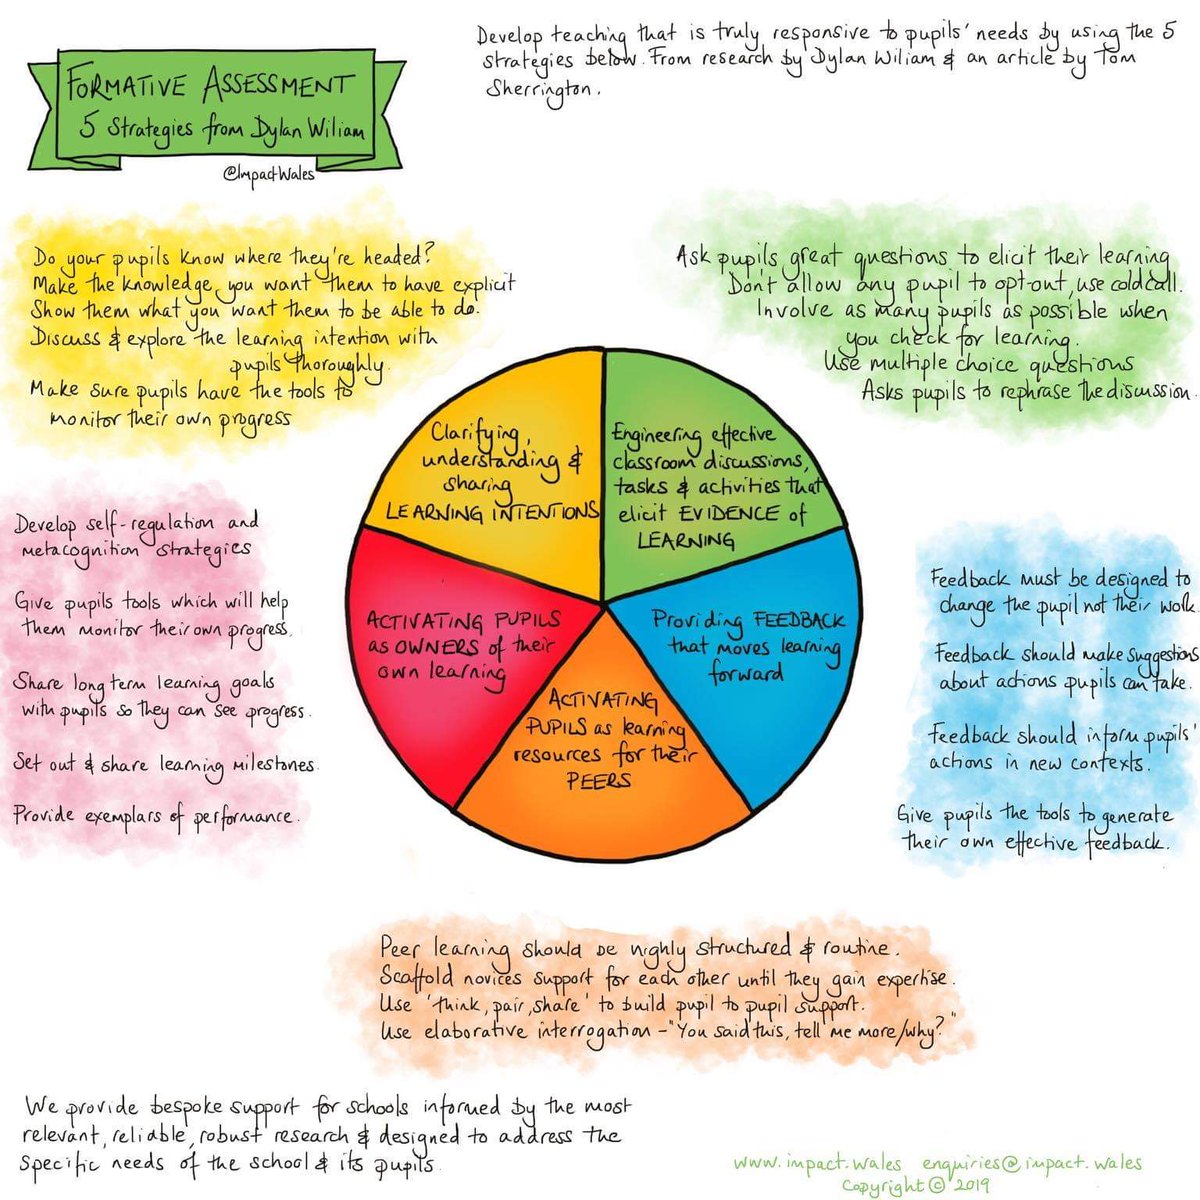 FORMATIVE ASSESSMENT
5 Strategies from Dylan Wiliam
@ImpactWales
Develop teaching that is truly responsive to pupils' needs by using the 5
strategies below. From research by Dylan Wiliam & an article by Tom
Sherrington.
Do your pupils know where they're headed?
Make the knowledge you want them to have explicit
Show them what you want them to be able to do.
Discuss & explore the learning intention with
pupils thoroughly.
Make sure pupils have the tools to
monitor their own progress
Ask pupils great questions to elicit their learning
Don't allow any pupil to opt-out, use cold call.
Involve as many pupils as possible when
you check for learning.
Use multiple choice questions
Asks pupils to rephrase the discussion.
Clarifying,
understanding &
sharing
LEARNING INTENTIONS
Engineering effective
classroom discussions,
tasks & activities that
elicit EVIDENCE of
LEARNING
ACTIVATING PUPILS
as OWNERS of their
own learning
Providing FEEDBACK
that moves learning
forward
ACTIVATING
PUPILS as learning
resources for their
PEERS
Develop self-regulation and
metacognition strategies
Give pupils tools which will help
them monitor their own progress.
Share long term learning goals
with pupils so they can see progress.
Set out & share learning milestones.
Provide exemplars of performance.
Feedback must be designed to
change the pupil not their work.
Feedback should make suggestions
about actions pupils can take.
Feedback should inform pupils'
actions in new contexts.
Give pupils the tools to generate
their own effective feedback.
Peer learning should be highly structured & routine.
Scaffold novices support for each other until they gain expertise.
Use 'think, pair, share' to build pupil to pupil support.
Use elaborative interrogation - "You said this, tell me more/why?"
We provide bespoke support for schools informed by the most
relevant, reliable, robust research & designed to address the
specific needs of the school & its pupils.
www.impact.wales enquiries@impact.wales
Copyright © 2019